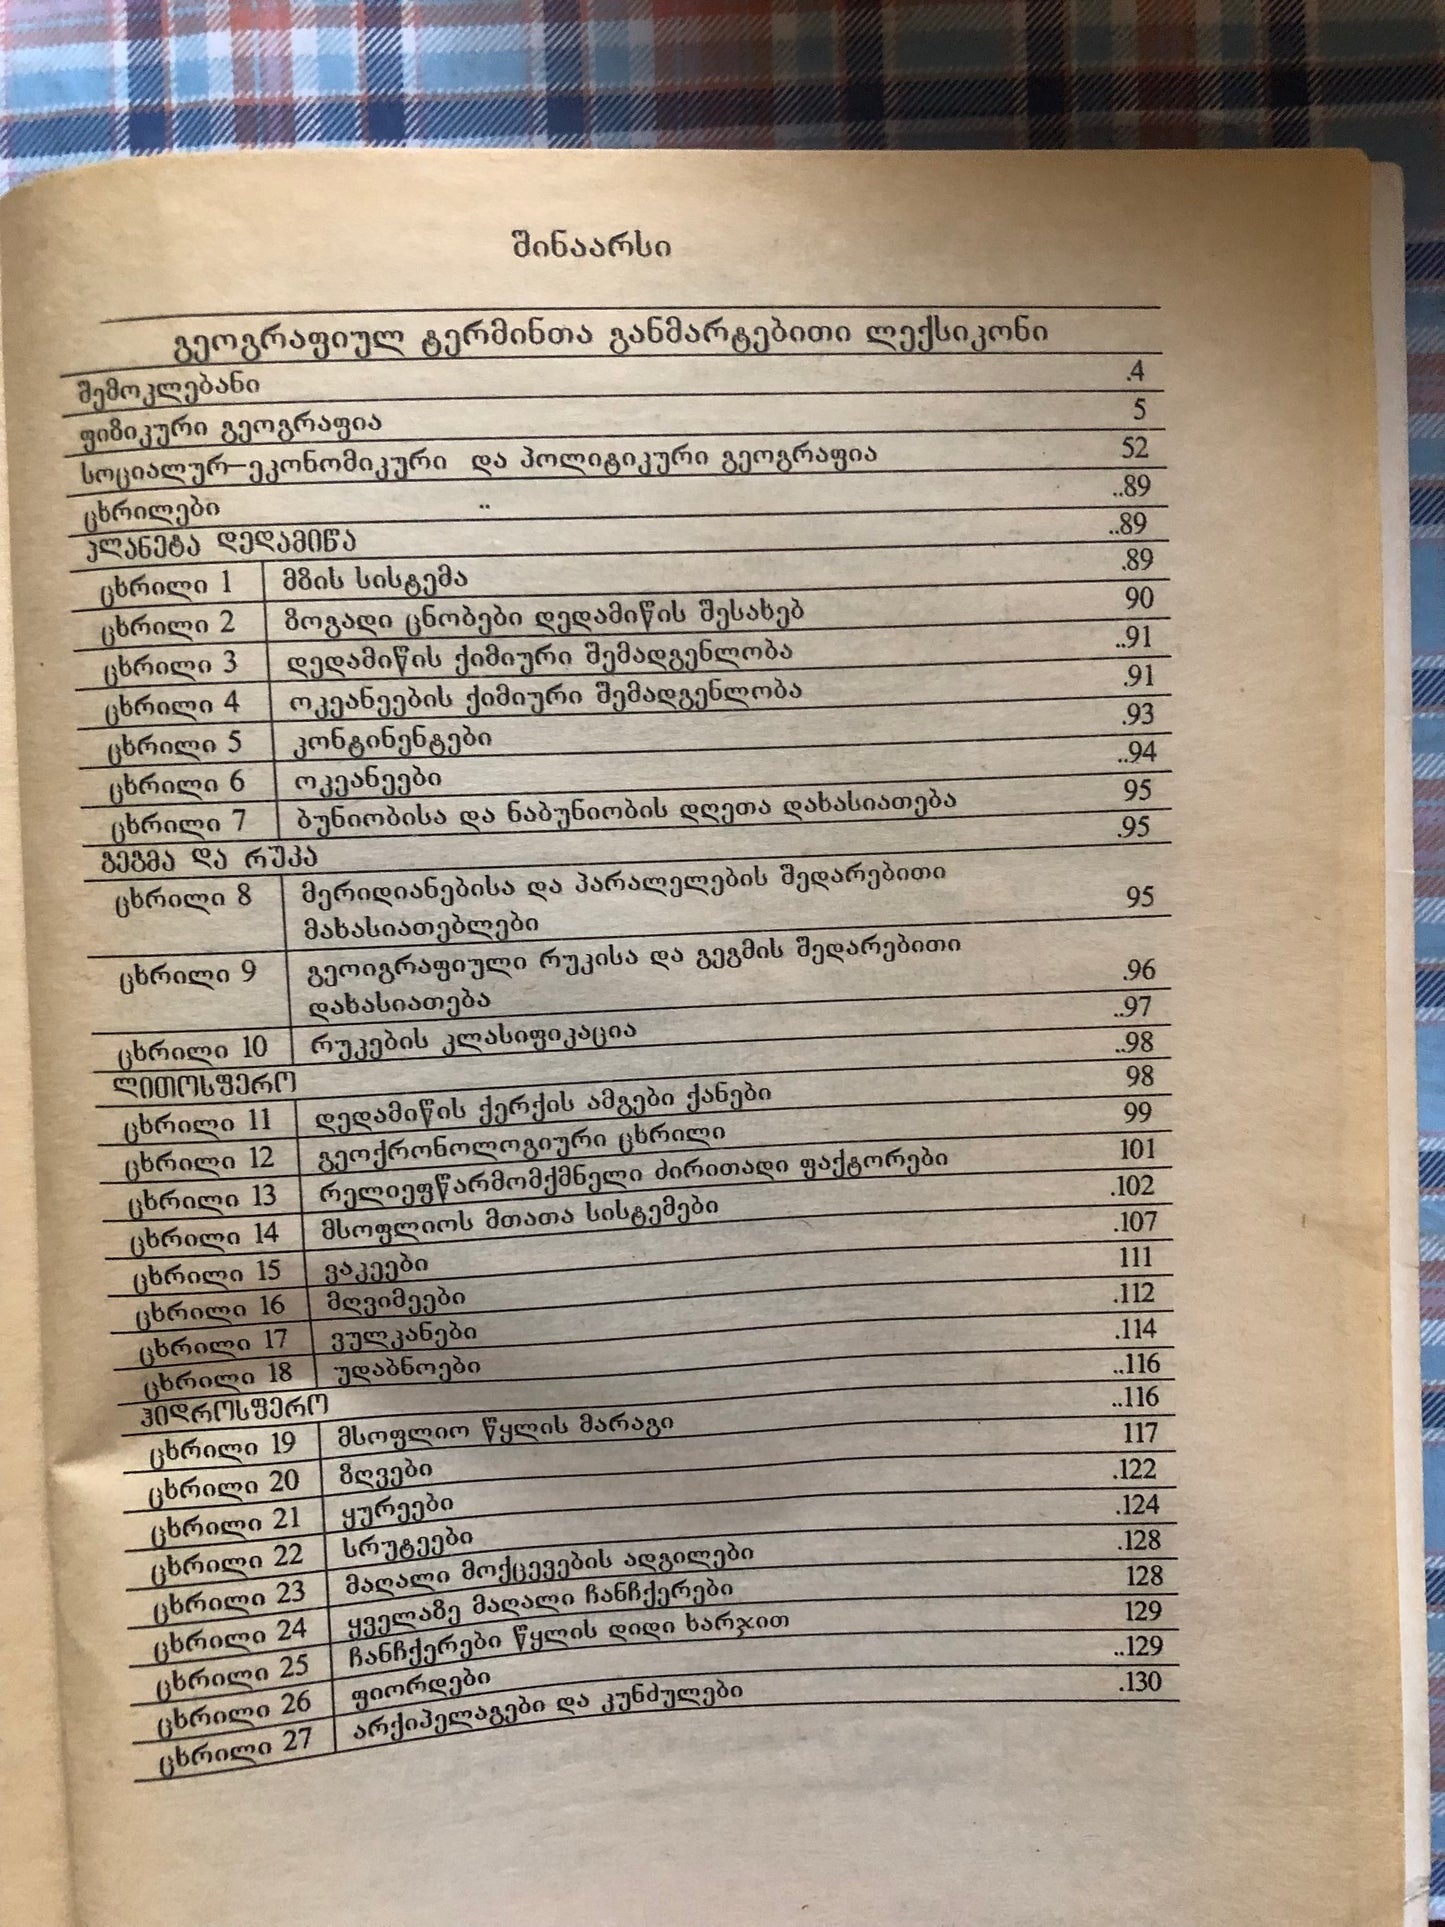 შინაარსი
გეოგრაფიულ ტერმინთა განმარტებითი ლექსიკონი
შემოკლებანი .4
ფიზიკური გეოგრაფია 5
სოციალურ–ეკონომიკური და პოლიტიკური გეოგრაფია 52
ცხრილები .. ..89
პლანეტა დედამიწა ..89
ცხრილი 1 მზის სისტემა .89
ცხრილი 2 ზოგადი ცნობები დედამიწის შესახებ 90
ცხრილი 3 დედამიწის ქიმიური შემადგენლობა ..91
ცხრილი 4 ოკეანეების ქიმიური შემადგენლობა .91
ცხრილი 5 კონტინენტები .93
ცხრილი 6 ოკეანეები ..94
ცხრილი 7 ბუნიობისა და ნაბუნიობის დღეთა დახასიათება 95
გეგმა და რუკა .95
ცხრილი 8 მერიდიანებისა და პარალელების შედარებითი
მახასიათებლები 95
ცხრილი 9 გეოიგრაფიული რუკისა და გეგმის შედარებითი
დახასიათება .96
ცხრილი 10 რუკების კლასიფიკაცია ..97
ლითოსფერო ..98
ცხრილი 11 დედამიწის ქერქის ამგები ქანები 98
ცხრილი 12 გეოქრონოლოგიური ცხრილი 99
ცხრილი 13 რელიეფწარმომქმნელი ძირითადი ფაქტორები 101
ცხრილი 14 მსოფლიოს მთათა სისტემები .102
ცხრილი 15 ვაკეები .107
ცხრილი 16 მღვიმეები 111
ცხრილი 17 ვულკანები .112
ცხრილი 18 უდაბნოები .114
ჰიდროსფერო ..116
ცხრილი 19 მსოფლიო წყლის მარაგი ..116
ცხრილი 20 ზღვები 117
ცხრილი 21 ყურეები .122
ცხრილი 22 სრუტეები .124
ცხრილი 23 მაღალი მოქცევების ადგილები .128
ცხრილი 24 ყველაზე მაღალი ჩანჩქერები 128
ცხრილი 25 ჩანჩქერები წყლის დიდი ხარჯით 129
ცხრილი 26 ფიორდები ..129
ცხრილი 27 არქიპელაგები და კუნძულები .130